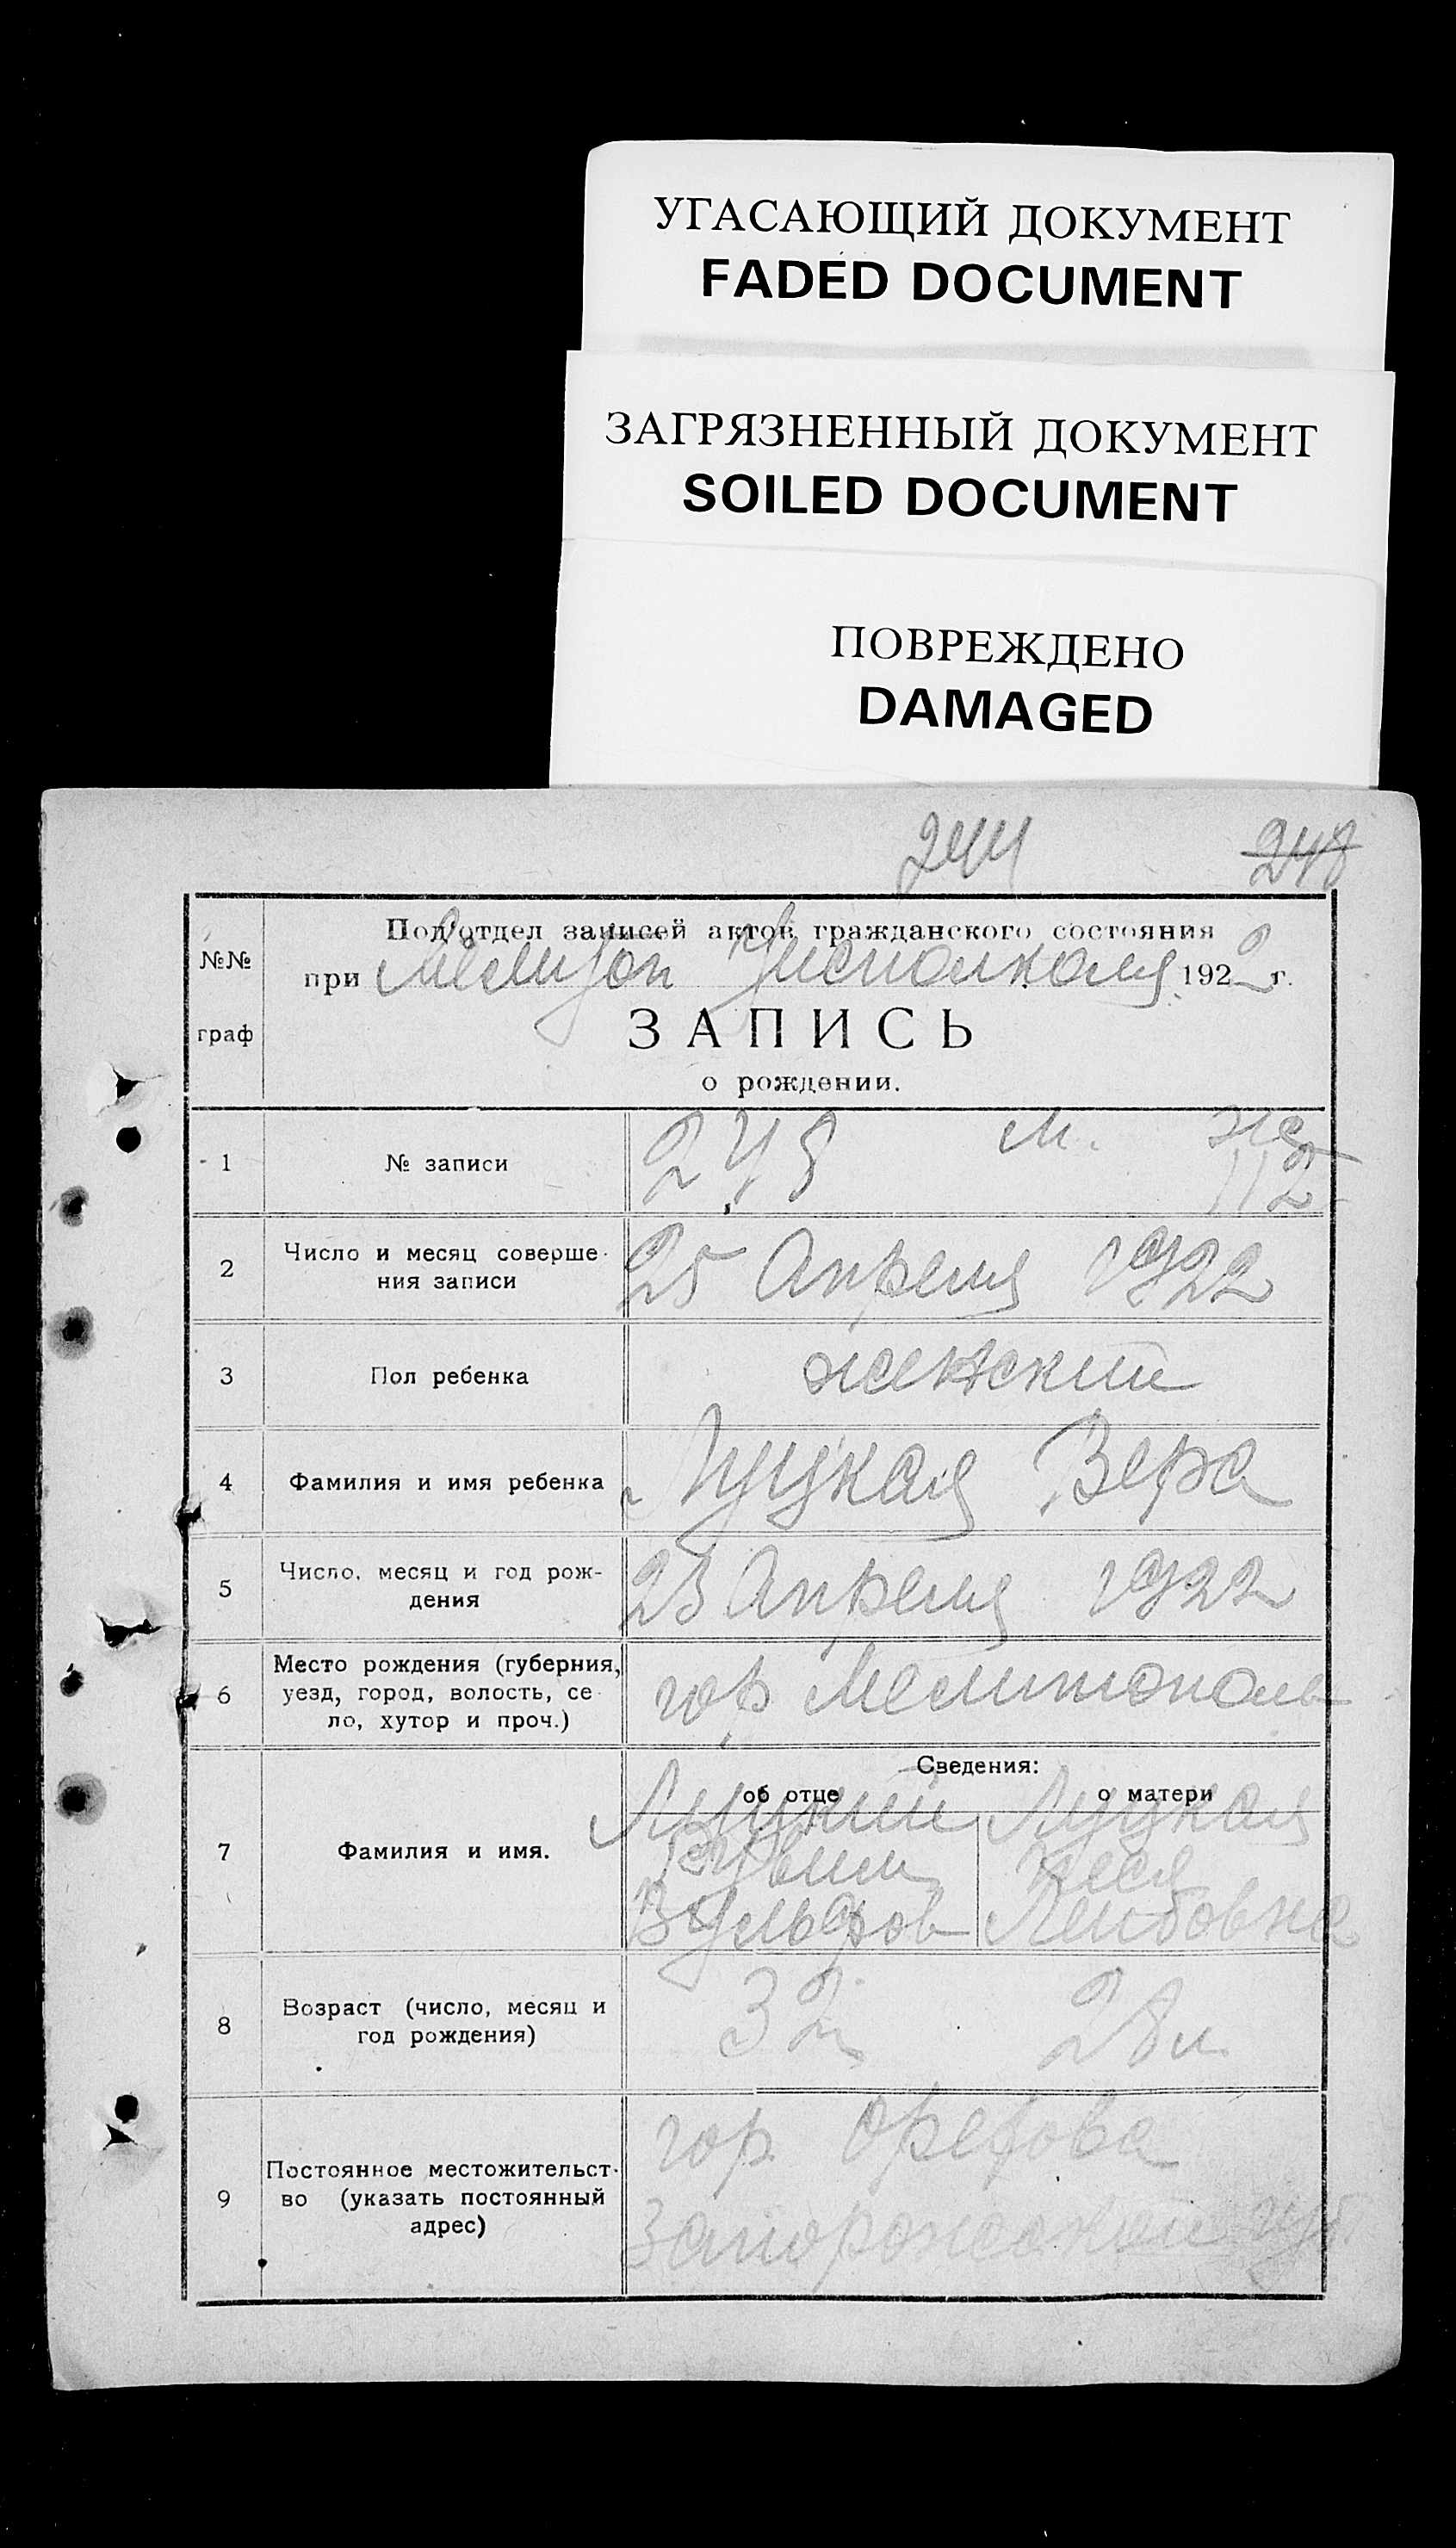 УГАСАЮЩИЙ ДОКУМЕНТ
FADED DOCUMENT
ЗАГРЯЗНЕННЫЙ ДОКУМЕНТ
SOILED DOCUMENT
ПОВРЕЖДЕНО
DAMAGED
244 248
№№ граф
Подотдел записей актов гражданского состояния
при Исполкома 1922 г.
ЗАПИСЬ
о рождении.
1 № записи 248 м. же
112
2 Число и месяц соверше-
ния записи 25 Апреля 1922
3 Пол ребенка женский
4 Фамилия и имя ребенка Луцкая Вера
5 Число, месяц и год рож-
дения 23 Апреля 1922
6 Место рождения (губерния,
уезд, город, волость, се-
ло, хутор и проч.) гор Мелитополь
Сведения:
об отце о матери
7 Фамилия и имя. Луцкий Луцкая
Рувин
Вульфов Лейбовна
8 Возраст (число, месяц и
год рождения) 32 28 л
9 Постоянное местожительст-
во (указать постоянный
адрес) гор Орехова
Запорожский губ.